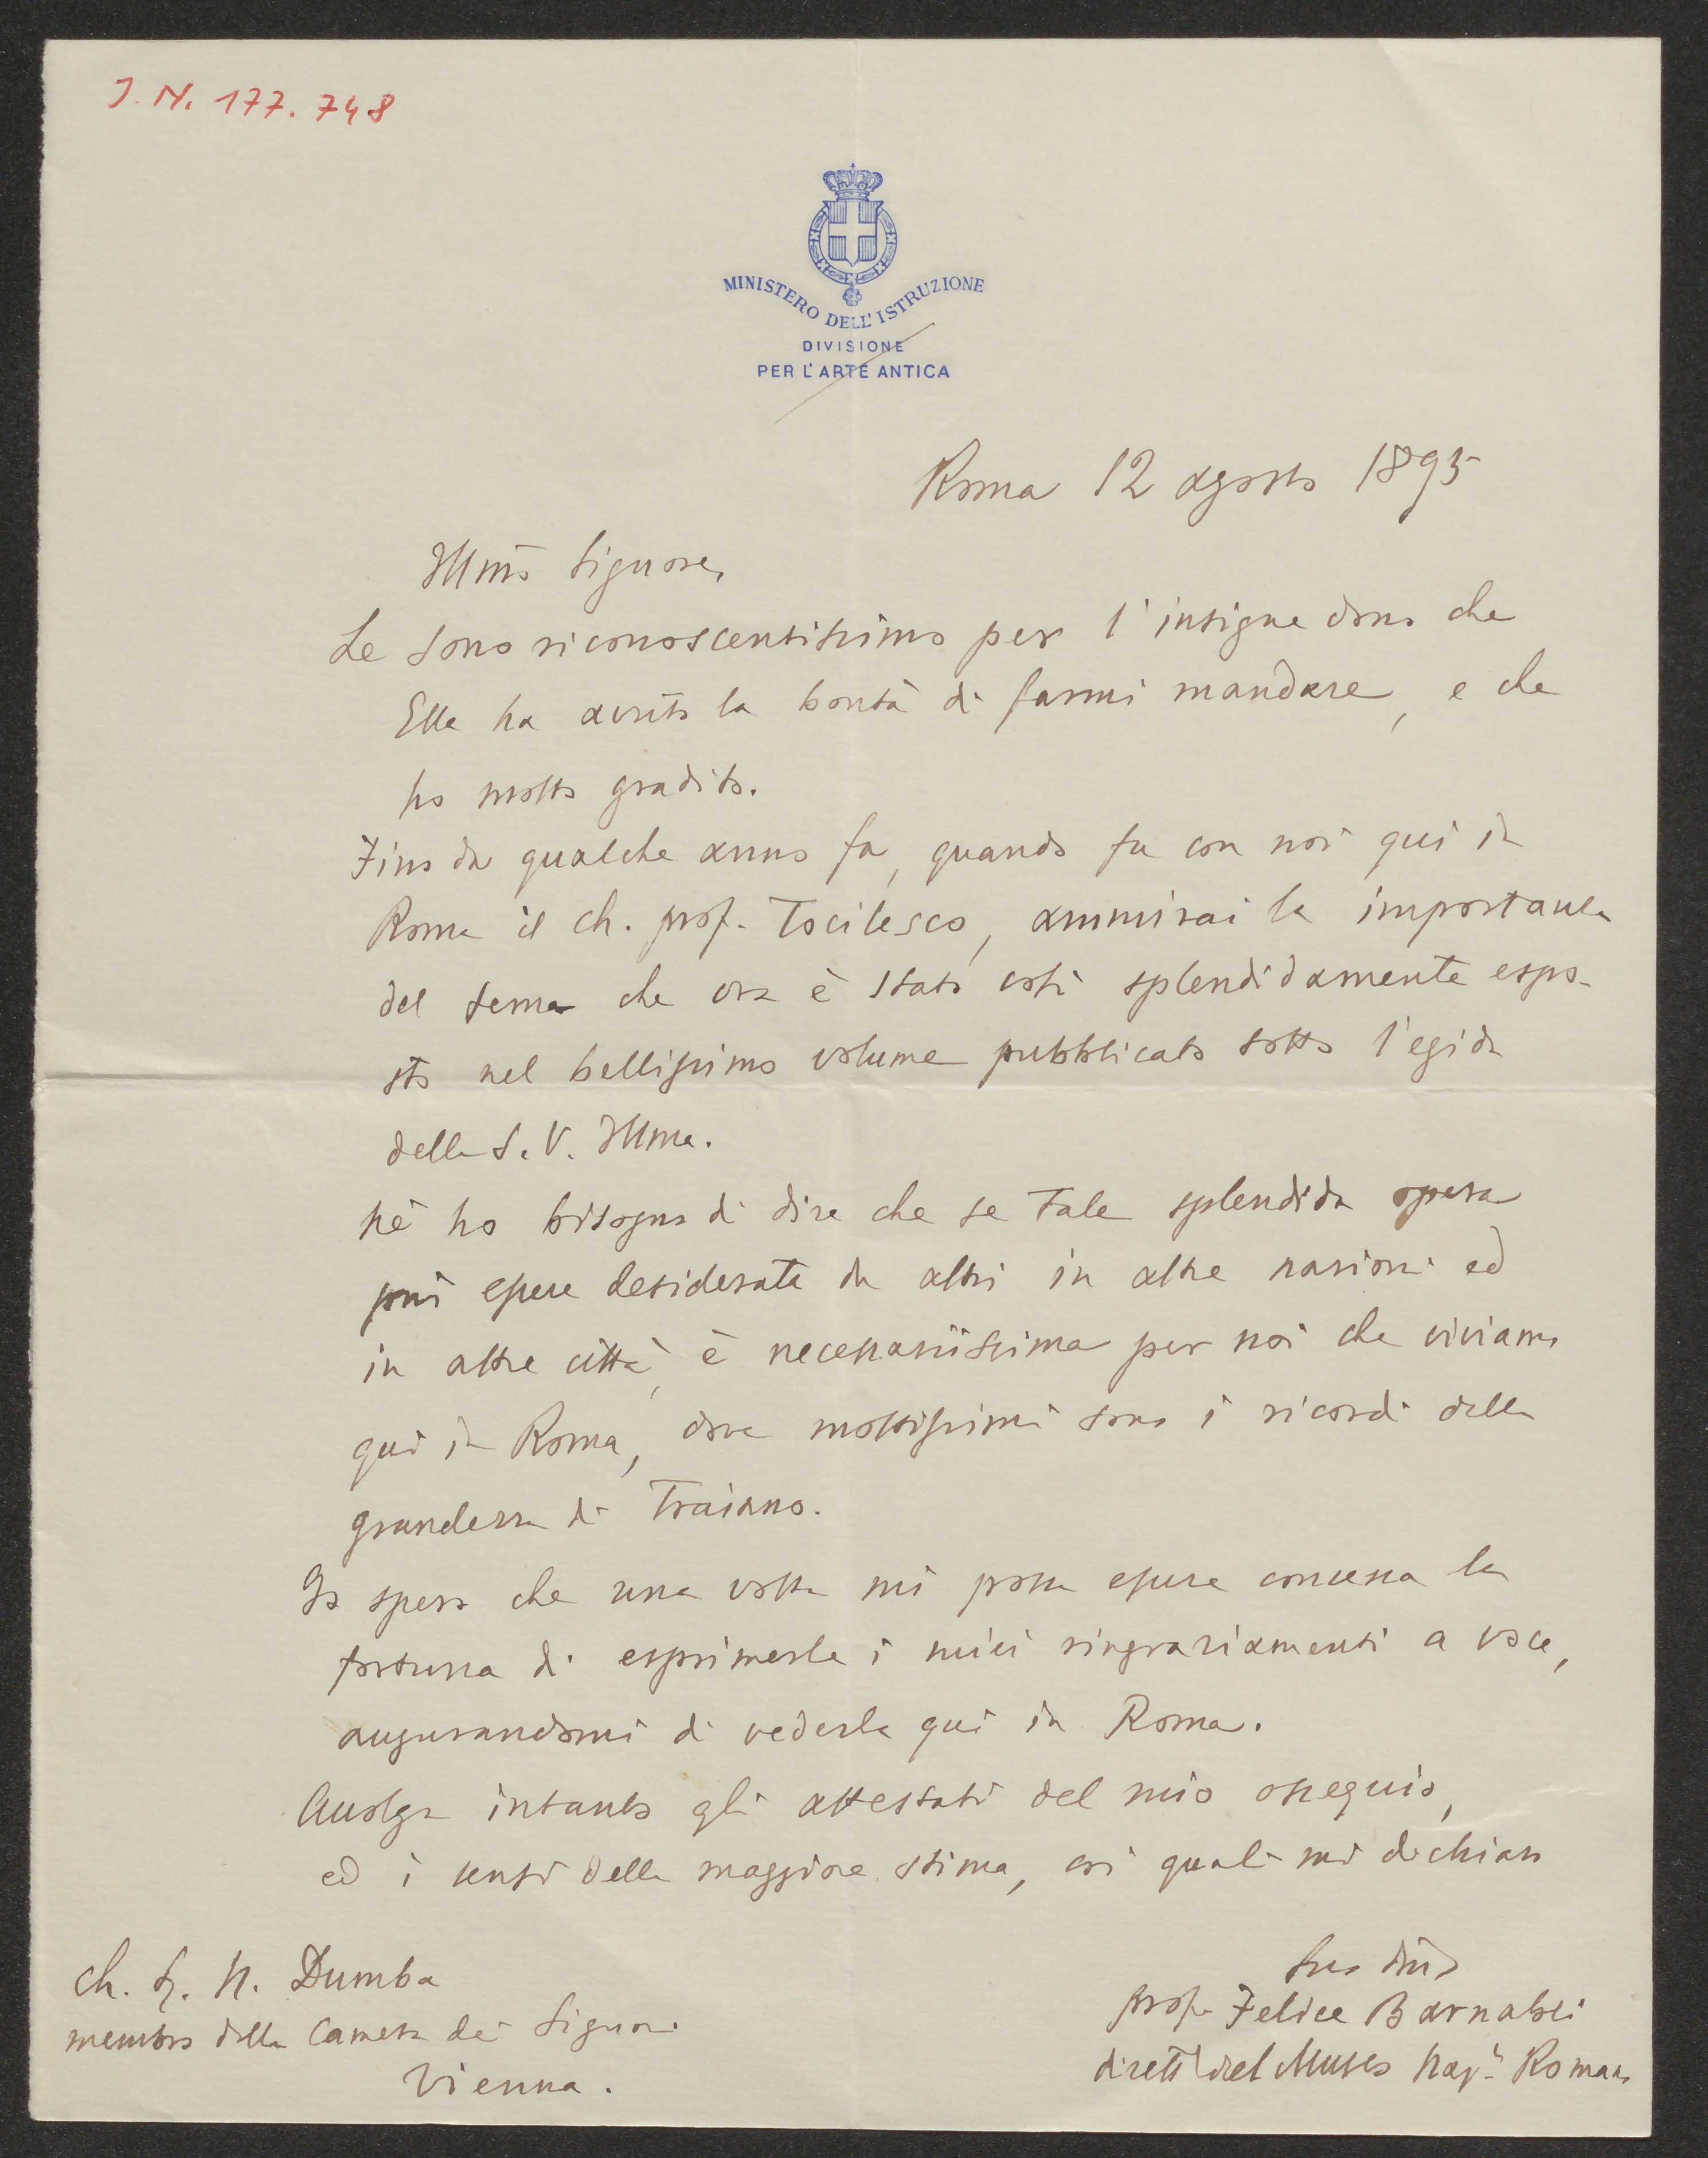 J. N. 177.748
MINISTERO DELL'ISTRUZIONE
DIVISIONE
PER L'ARTE ANTICA
Roma 12 agosto 1895
Illmo Signore,
Le sono riconoscentissimo per l'insigne dono che
Ella ha avuto la bontà di farmi mandare, e che
ho molto gradito.
Fino da qualche anno fa, quando fu con noi qui in
Roma il ch. prof. Tocilesco, ammirai la importanza
del tema che ora è stato così splendidamente espo-
sto nel bellissimo volume pubblicato sotto l'egida
della S. V. Illma.
Nè ho bisogno di dire che se tale splendida opera
può essere desiderata da altri in altre nazioni ed
in altre città, è necessariissima per noi che viviamo
qui in Roma, dove moltissimi sono i ricordi della
grandezza di Traiano.
Io spero che una volta mi possa essere concessa la
fortuna di esprimerle i miei ringraziamenti a voce,
augurandomi di vederla qui in Roma.
Accolga intanto gli attestati del mio ossequio,
ed i sensi della maggiore stima, coi quali mi dichiaro
Suo dmo
prof. Felice Barnabei
dirett del Museo Naz.le Romano
Ch. S. N. Dumba
membro della Camera dei Signori
Vienna.